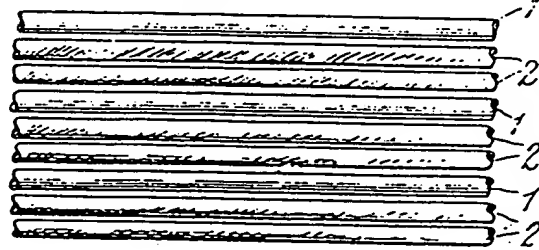 1
2
1
2
1
2